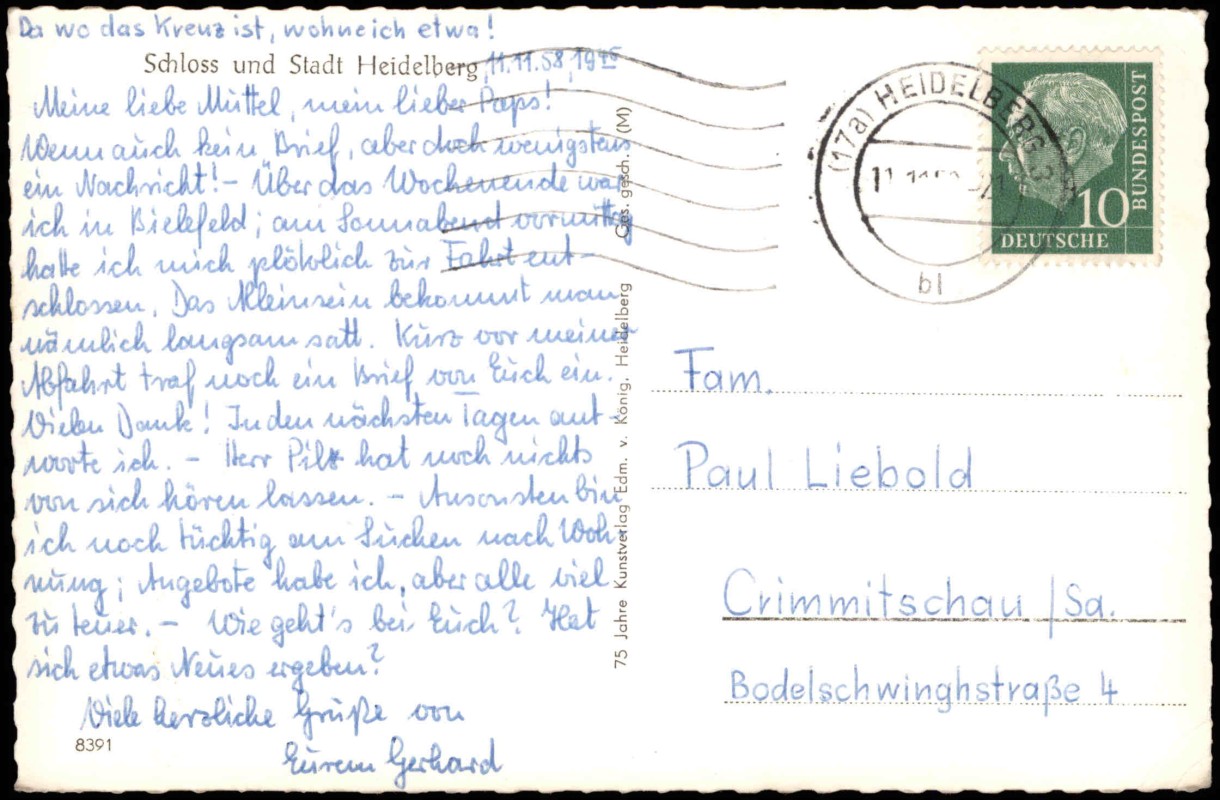 Da wo das Kreuz ist, wohne ich etwa!
Schloss und Stadt Heidelberg
11.11.58, 19
Meine liebe Muttel, mein lieber Paps!
Wenn auch kein Brief, aber doch wenigstens
ein Nachricht! - Über das Wochenende war
ich in Bielefeld; am Sonnabend vormittag
hatte ich mich plötzlich zur Fahrt ent-
schlossen. Das Alleinsein bekommt man
nämlich langsam satt. Kurz vor meiner
Abfahrt traf noch ein Brief von Euch ein.
Vielen Dank! In den nächsten Tagen ant-
worte ich. - Herr Pilz hat noch nichts
von sich hören lassen. - Ansonsten bin
ich noch tüchtig am Suchen nach Woh-
nung; Angebote habe ich, aber alle viel
zu teuer. - Wie geht's bei Euch? Hat
sich etwas Neues ergeben?
Viele herzliche Grüße von
Eurem Gerhard
8391
75 Jahre Kunstverlag Edm. v. König, Heidelberg Ges. gesch. (M)
(17a) HEIDELBERG
bl
10
DEUTSCHE
BUNDESPOST
Fam.
Paul Liebold
Crimmitschau /Sa.
Bodelschwinghstraße 4